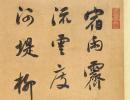 宿雨霽
流雲度
河堤柳